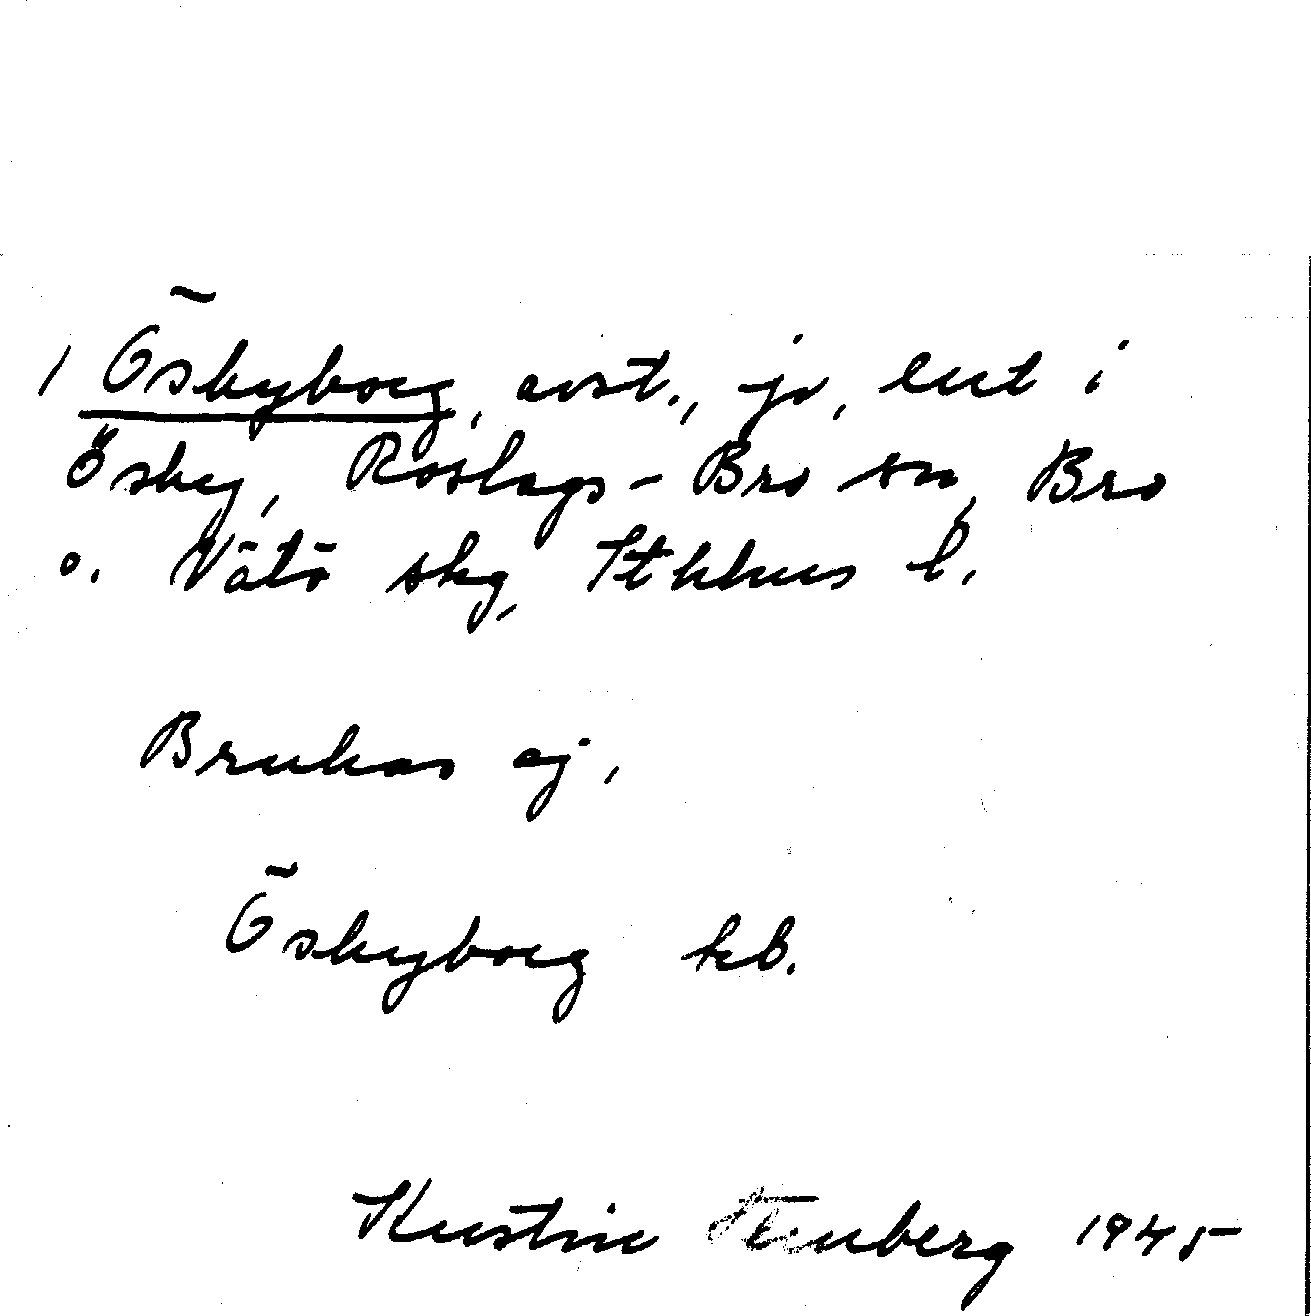 1 Ösbyborg, avst., jr, i
Ösby, Roslags-Bro sn, Bro
o. Vätö skg, Sthlms l.
Brukas ej.
Ösbyborg kb.
Kerstin Stenberg 1945